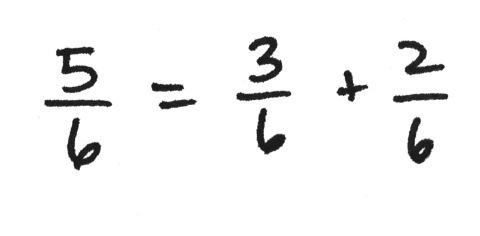 5/6 = 3/6 + 2/6